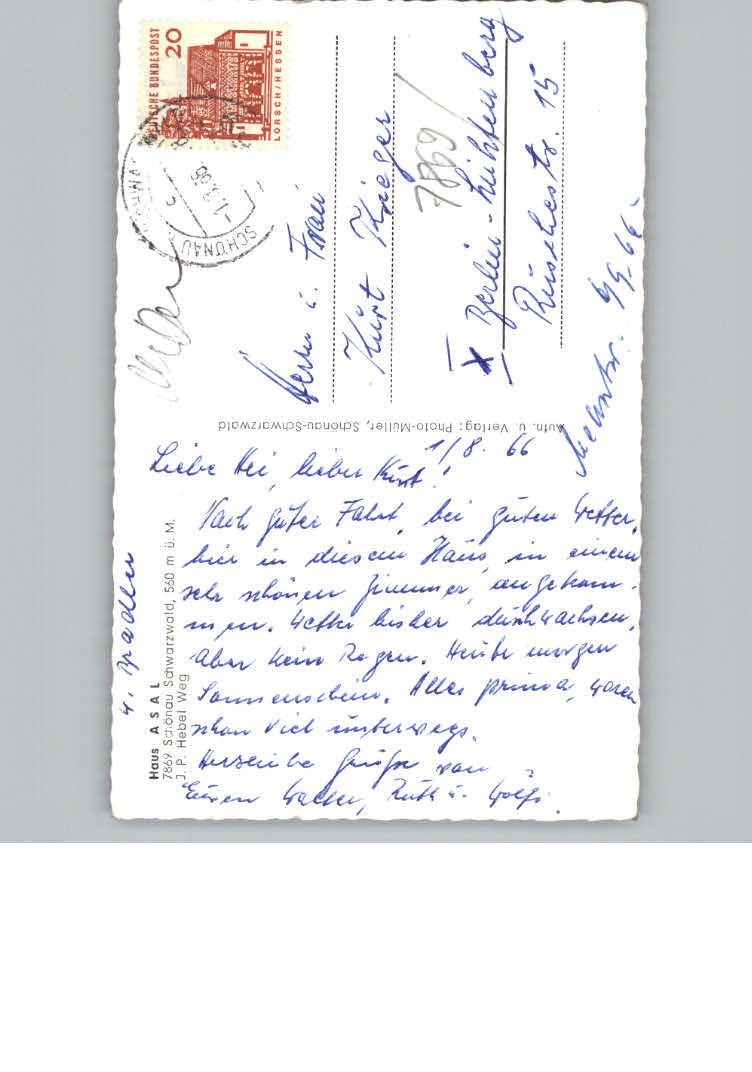 DEUTSCHE BUNDESPOST
20
LORSCH/HESSEN
SCHÖNAU
Herrn u. Frau
Kurt Krieger
7869
X Berlin-Lichtenberg
Ruschestr. 15
9/9. 66
Aufn. u. Verlag: Photo-Müller, Schönau-Schwarzwald
1/8. 66
Liebe Hei, lieber Kurt!
Nach guter Fahrt, bei guten Wetter,
hier in diesem Haus, in einem
sehr schönen Zimmer, angekom-
men. Wetter bisher durchwachsen,
Aber kein Regen. Heute morgen
Sonnenschein. Alles prima, waren
schon viel unterwegs.
Herzliche Grüße von
Euren Walter, Ruth u. Wolfg.
Haus ASAL
7869 Schönau Schwarzwald, 560 m ü. M.
J. P. Hebel Weg